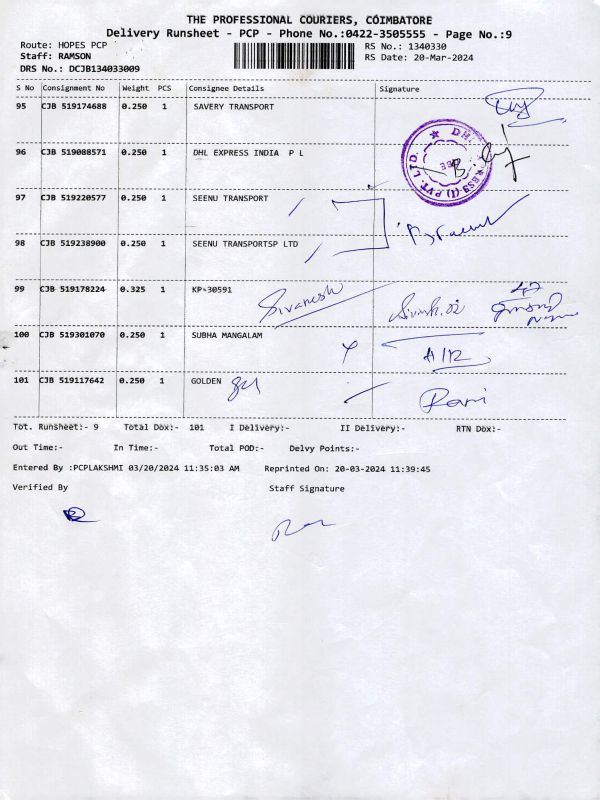 THE PROFESSIONAL COURIERS, COIMBATORE
Delivery Runsheet - PCP - Phone No.:0422-3505555 - Page No.:9
Route: HOPES PCP RS No.: 1340330
Staff: RAMSON RS Date: 20-Mar-2024
DRS No.: DCJB134033009
S No Consignment No Weight PCS Consignee Details Signature
95 CJB 519174688 0.250 1 SAVERY TRANSPORT
96 CJB 519088571 0.250 1 DHL EXPRESS INDIA P L
97 CJB 519220577 0.250 1 SEENU TRANSPORT
98 CJB 519238900 0.250 1 SEENU TRANSPORTSP LTD
99 CJB 519178224 0.325 1 KP-30591 Sivanesh
100 CJB 519301070 0.250 1 SUBHA MANGALAM
101 CJB 519117642 0.250 1 GOLDEN Rani
Tot. Runsheet:- 9 Total Dox:- 101 I Delivery:- II Delivery:- RTN Dox:-
Out Time:- In Time:- Total POD:- Delvy Points:-
Entered By :PCPLAKSHMI 03/20/2024 11:35:03 AM Reprinted On: 20-03-2024 11:39:45
Verified By Staff Signature